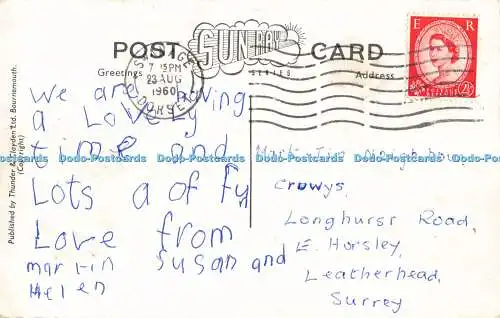 POST SUN RAY CARD
SERIES
Greetings
Address
SWANAGE
7 15PM
23 AUG
1960
DORSET
E R
POSTAGE
2½D
Published by Thunder & Clayden Ltd. Bournemouth.
(Copyright)
We are having
a Lovely
time and
Lots a of fu
Love from
martin Susan and
Helen
Crowys,
Longhurst Road,
E. Horsley,
Leatherhead,
Surrey
Dodo-Postcards Dodo-Postcards Dodo-Postcards Dodo-Postcards Dodo-Postcards Dodo-Postcards